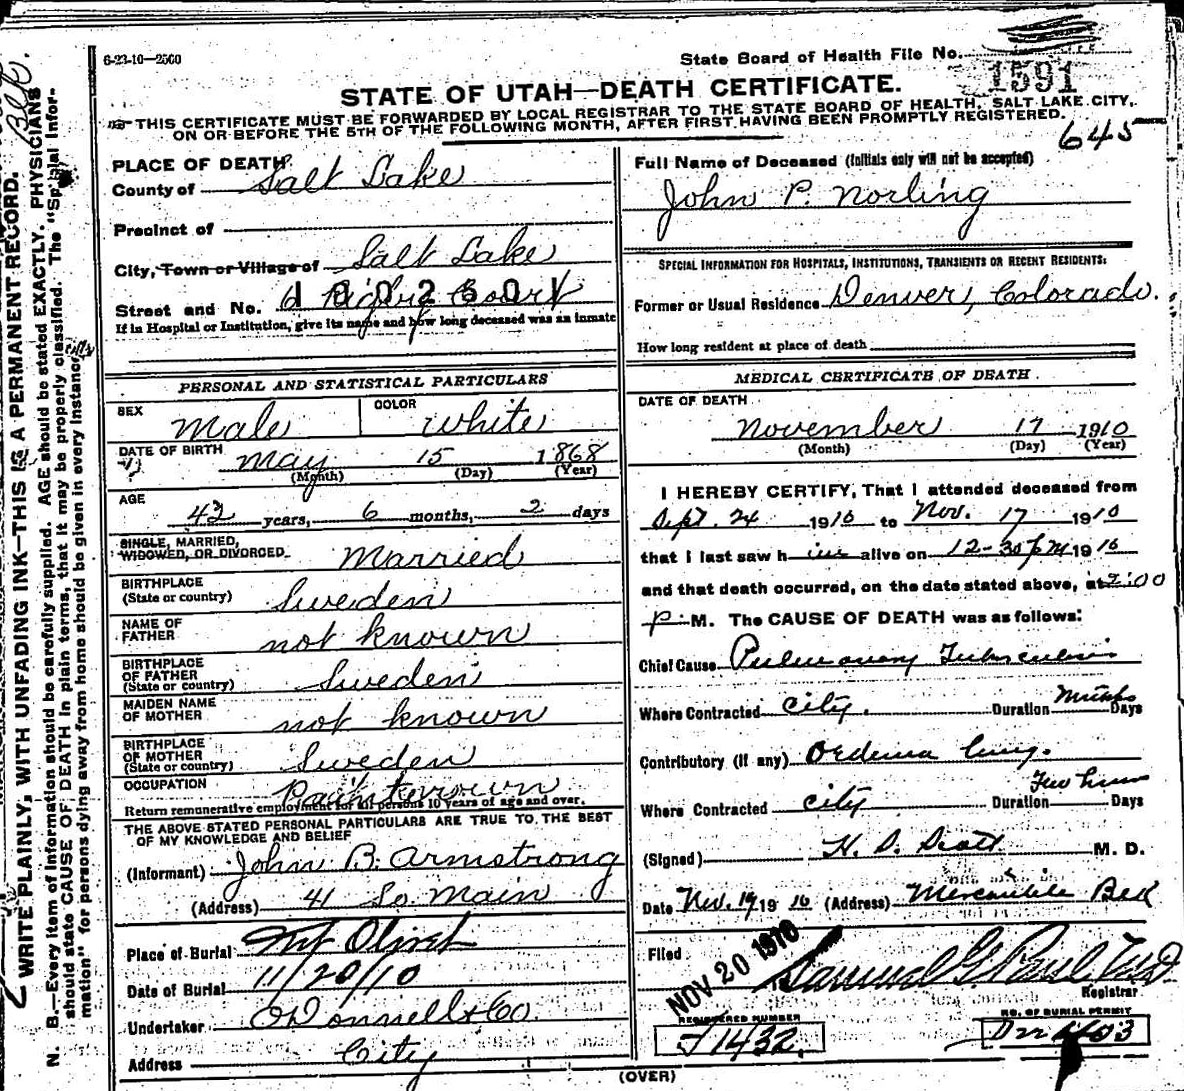 6-23-10—2500
State Board of Health File No.
1591
STATE OF UTAH—DEATH CERTIFICATE.
THIS CERTIFICATE MUST BE FORWARDED BY LOCAL REGISTRAR TO THE STATE BOARD OF HEALTH, SALT LAKE CITY,
ON OR BEFORE THE 5TH OF THE FOLLOWING MONTH, AFTER FIRST HAVING BEEN PROMPTLY REGISTERED.
645
PLACE OF DEATH
County of Salt Lake
Precinct of
City, Town or Village of Salt Lake
Street and No. 6 Court
If in Hospital or Institution, give its name and how long deceased was an inmate
PERSONAL AND STATISTICAL PARTICULARS
SEX Male COLOR White
DATE OF BIRTH May 15 1868
(Month) (Day) (Year)
AGE 42 years, 6 months, 2 days
SINGLE, MARRIED, WIDOWED, OR DIVORCED Married
BIRTHPLACE (State or country) Sweden
NAME OF FATHER not known
BIRTHPLACE OF FATHER (State or country) Sweden
MAIDEN NAME OF MOTHER not known
BIRTHPLACE OF MOTHER (State or country) Sweden
OCCUPATION
Return remunerative employment for all persons 10 years of age and over.
THE ABOVE STATED PERSONAL PARTICULARS ARE TRUE TO THE BEST
OF MY KNOWLEDGE AND BELIEF
(Informant) John B. Armstrong
(Address) 41 So. Main
Place of Burial Mt Olivet
Date of Burial 11/20/10
Undertaker O'Donnell & Co.
Address City
Full Name of Deceased (Initials only will not be accepted)
John P. Norling
SPECIAL INFORMATION FOR HOSPITALS, INSTITUTIONS, TRANSIENTS OR RECENT RESIDENTS:
Former or Usual Residence Denver, Colorado.
How long resident at place of death
MEDICAL CERTIFICATE OF DEATH
DATE OF DEATH
November 17 1910
(Month) (Day) (Year)
I HEREBY CERTIFY, That I attended deceased from
Sept. 24 1910 to Nov. 17 1910
that I last saw him alive on 12-30 PM 1910
and that death occurred, on the date stated above, at 2:00
P. M. The CAUSE OF DEATH was as follows:
Chief Cause Pulmonary Tuberculosis
Where Contracted City. Duration Months Days
Contributory (if any) Oedema lung.
Where Contracted City Duration Two hours Days
(Signed) H. D. Scott M. D.
Date Nov. 19 1910 (Address) Mercantile
Filed NOV 20 1910
Samuel G. Paul
Registrar
REGISTERED NUMBER
J 1432.
NO. OF BURIAL PERMIT
(OVER)
WRITE PLAINLY, WITH UNFADING INK—THIS IS A PERMANENT RECORD.
N. B.—Every item of information should be carefully supplied. AGE should be stated EXACTLY. PHYSICIANS
should state CAUSE OF DEATH in plain terms, that it may be properly classified. The "Special Infor-
mation" for persons dying away from home should be given in every instance.